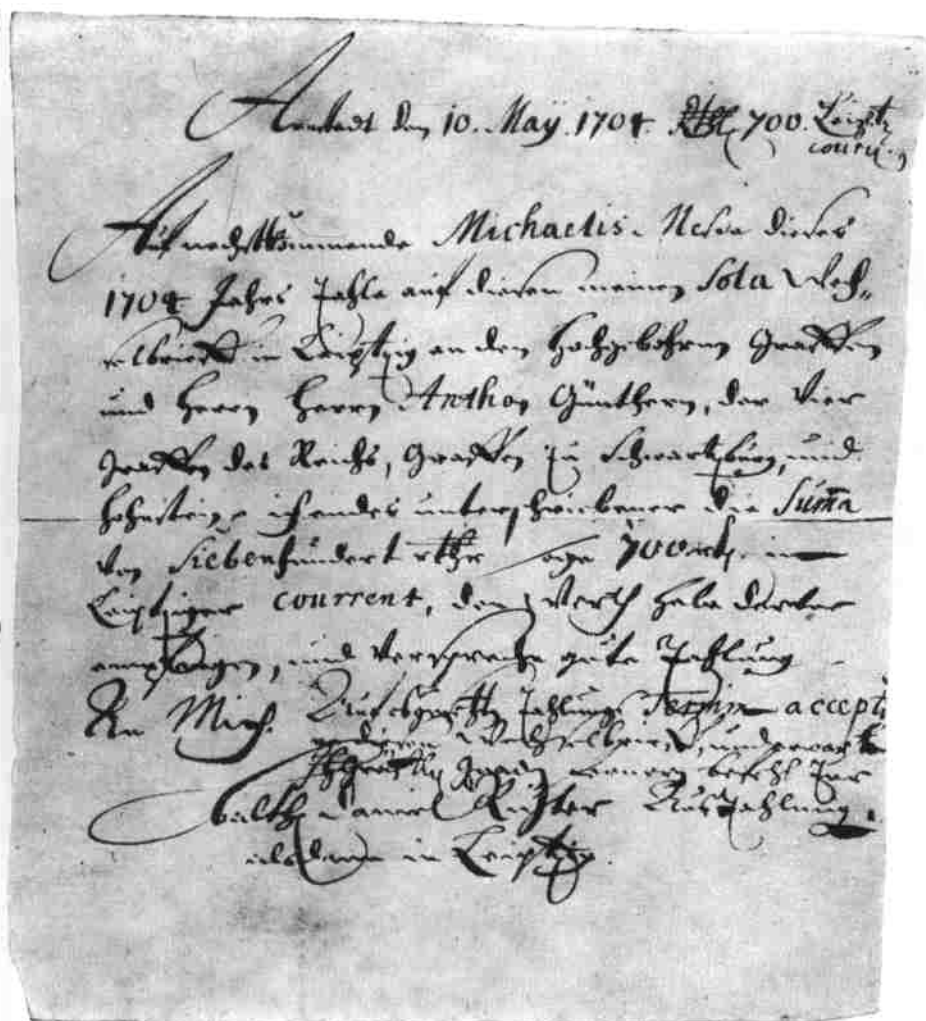 Arnstadt den 10. May 1704. Rthl 700. Leipz.
couru.
Auf nechstkommende Michaelis-Messe dieses
1704 Jahrs Zahle auf diesen meinen Sola Wech-
selbrieff in Leipzig an den Hochgebohrnen Graffen
und Herrn Herrn Anthon Günthern, der Vier
Graffen des Reichs, Graffen zu Schwartzburg, und
Hohnstein, ich endes unterschriebener die Suma
von Siebenhundert rthr sage 700 rthl. in
Leipziger courrent, den Werth habe darvor
empfangen, und Verspreche gute Zahlung
An Mich. Auf obgesetzten Zahlungs Termin accept.
Wechselbrieff, und
befehl zur
Balth. Daniel Richter Auszahlung.
alsdann in Leipzig.